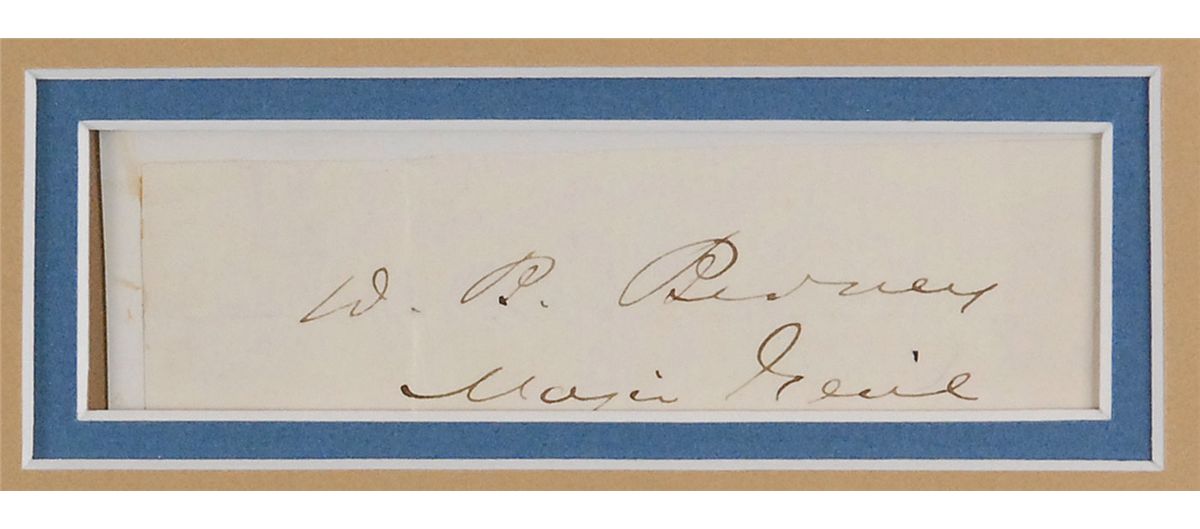 D. B. Birney
Major Genl